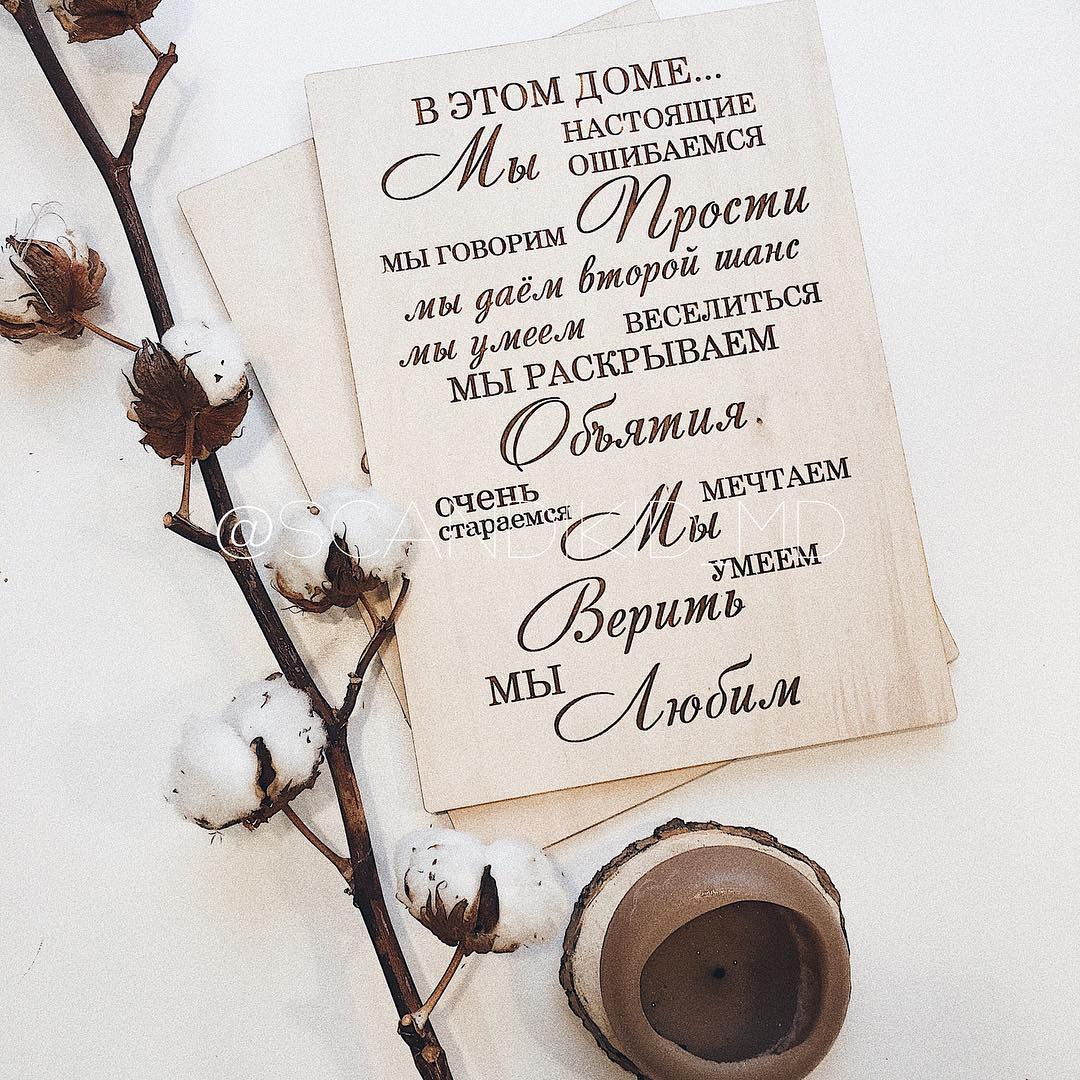 В ЭТОМ ДОМЕ...
Мы НАСТОЯЩИЕ
ОШИБАЕМСЯ
МЫ ГОВОРИМ Прости
мы даём второй шанс
мы умеем ВЕСЕЛИТЬСЯ
МЫ РАСКРЫВАЕМ
Объятия.
очень
стараемся Мы МЕЧТАЕМ
УМЕЕМ
Верить
МЫ Любим
@SCANDKID_MD